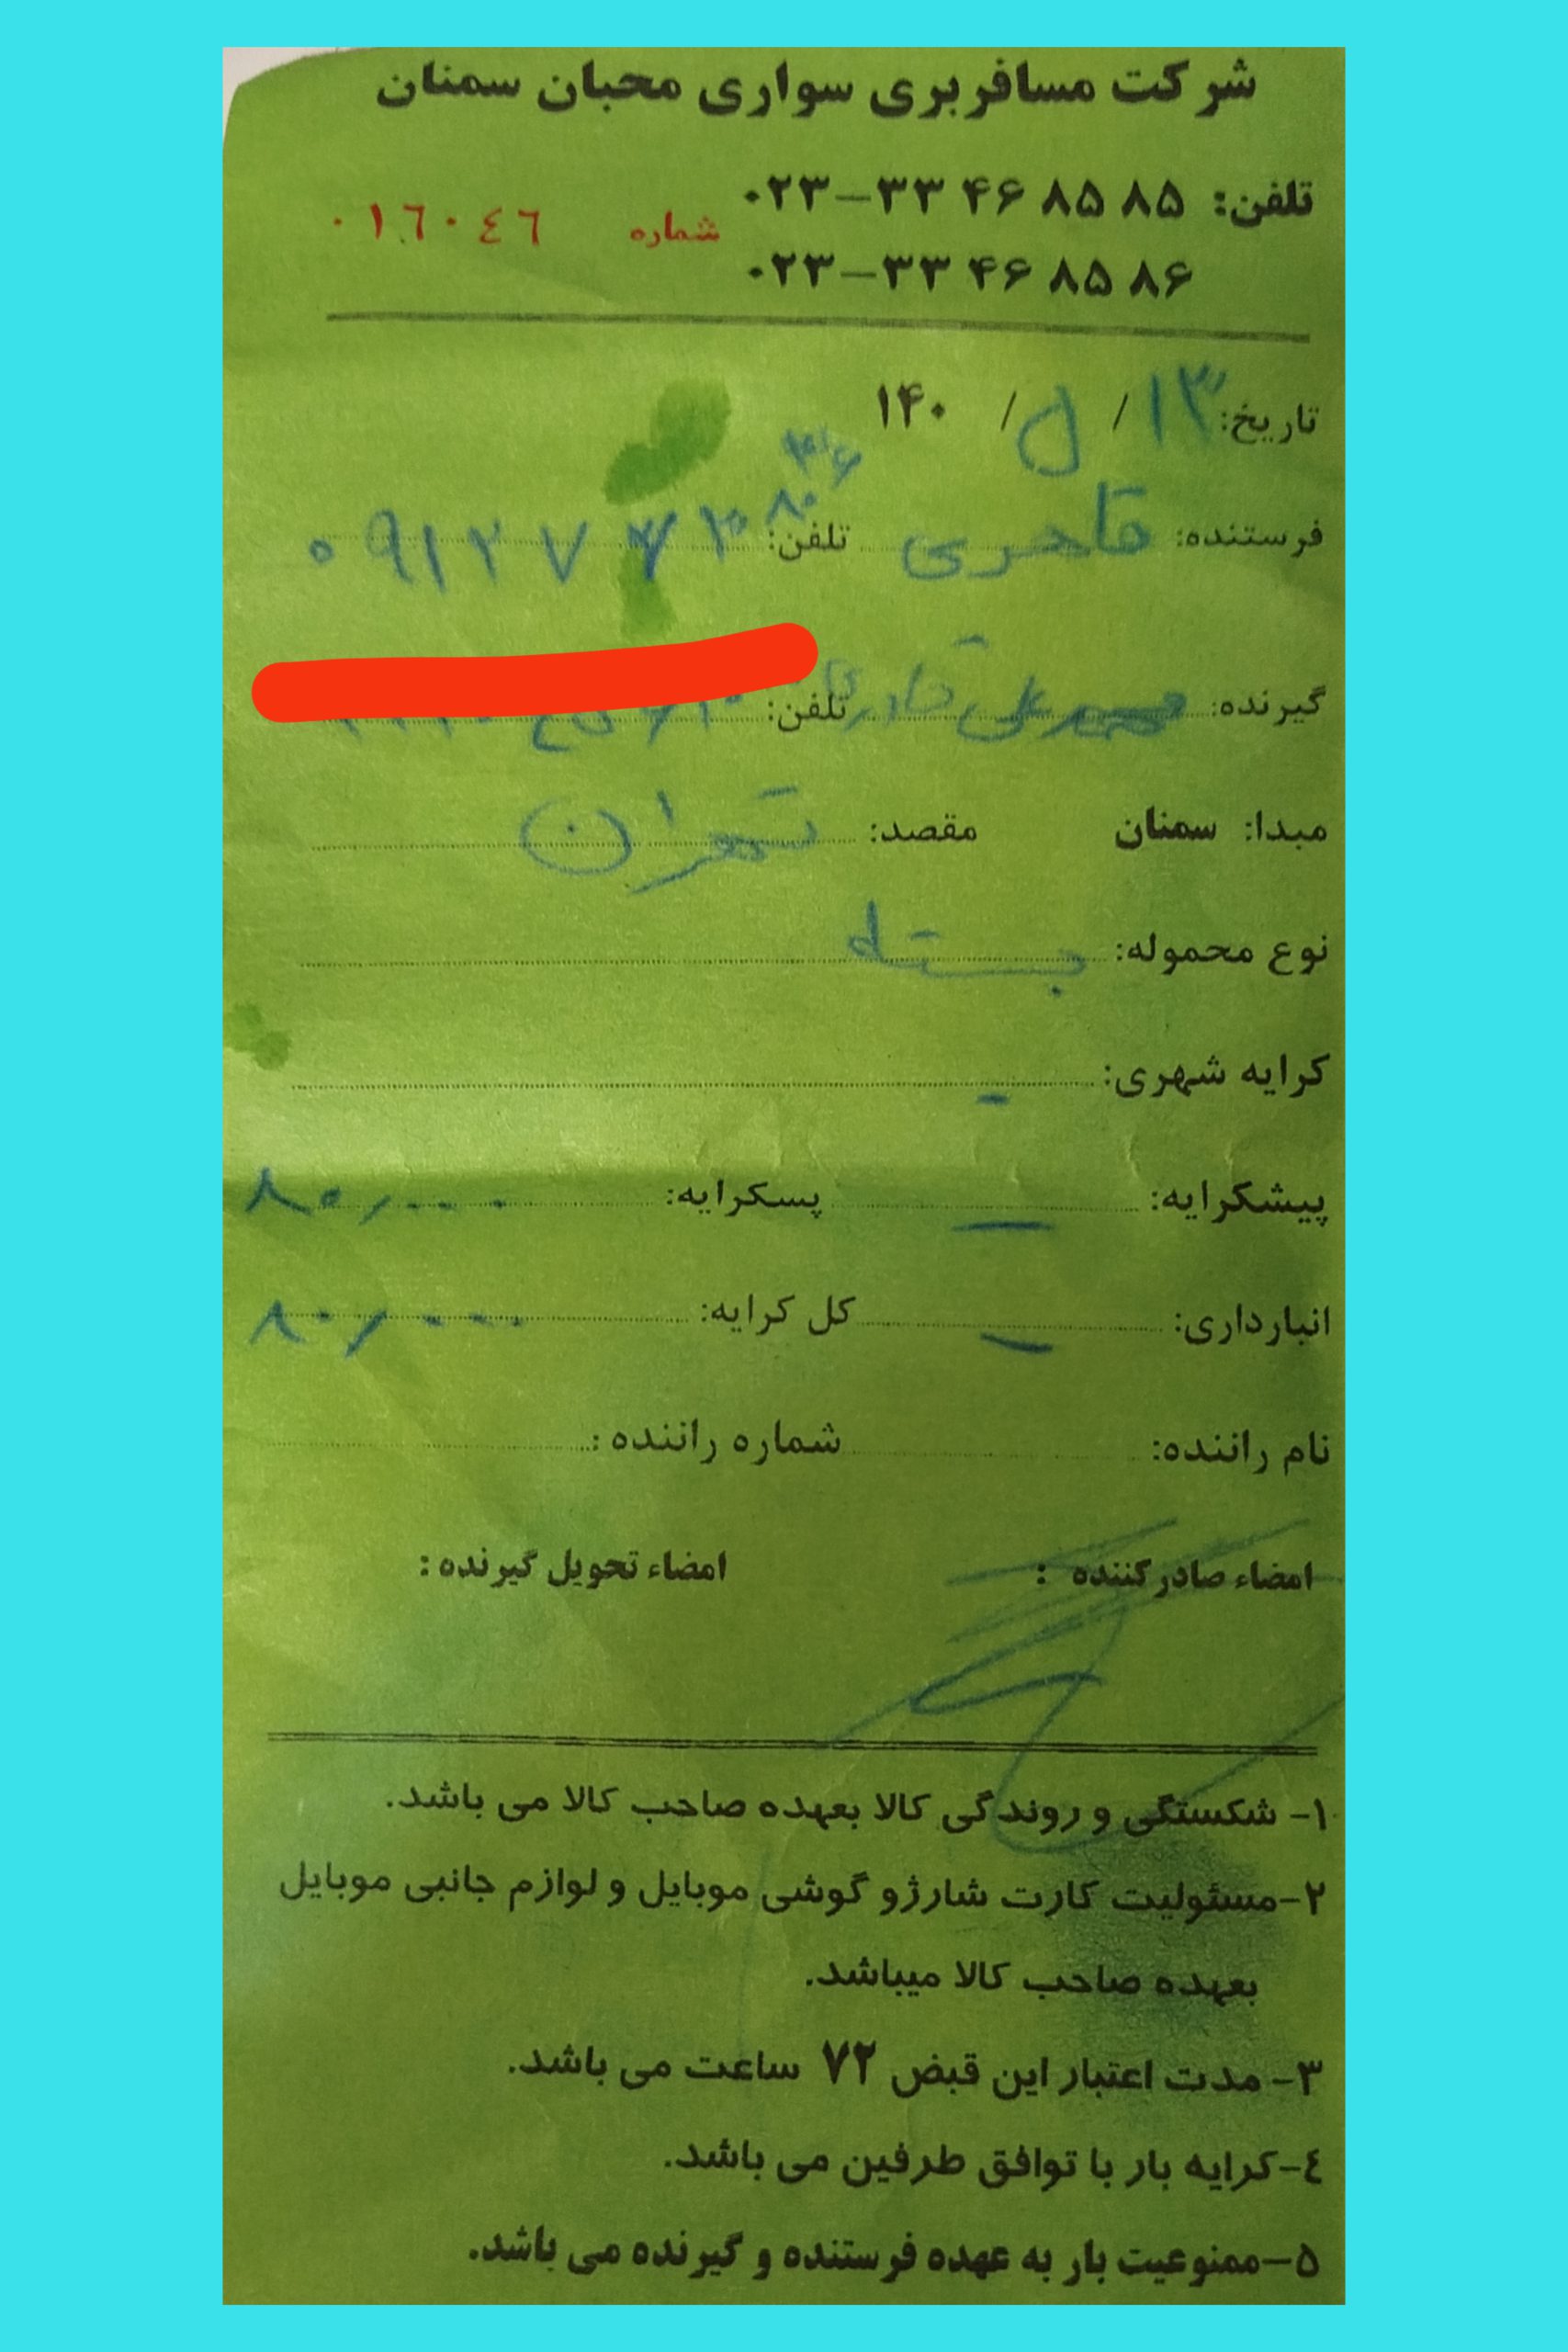 شرکت مسافربری سواری محبان سمنان
تلفن: ۰۲۳-۳۳ ۴۶ ۸۵ ۸۵
شماره ٠١٦٠٤٦
۰۲۳-۳۳ ۴۶ ۸۵ ۸۶
تاریخ: ۱۳ / / ۱۴۰
فرستنده: تلفن:
گیرنده: تلفن:
مبدا: سمنان مقصد: تهران
نوع محموله: بسته
کرایه شهری: -
پیشکرایه: - پسکرایه: ۸۰/۰۰۰
انبارداری: - کل کرایه: ۸۰/۰۰۰
نام راننده: شماره راننده:
امضاء صادرکننده : امضاء تحویل گیرنده :
۱- شکستگی و روندگی کالا بعهده صاحب کالا می باشد.
۲-مسئولیت کارت شارژو گوشی موبایل و لوازم جانبی موبایل
بعهده صاحب کالا میباشد.
۳- مدت اعتبار این قبض ۷۲ ساعت می باشد.
٤-کرایه بار با توافق طرفین می باشد.
۵-ممنوعیت بار به عهده فرستنده و گیرنده می باشد.